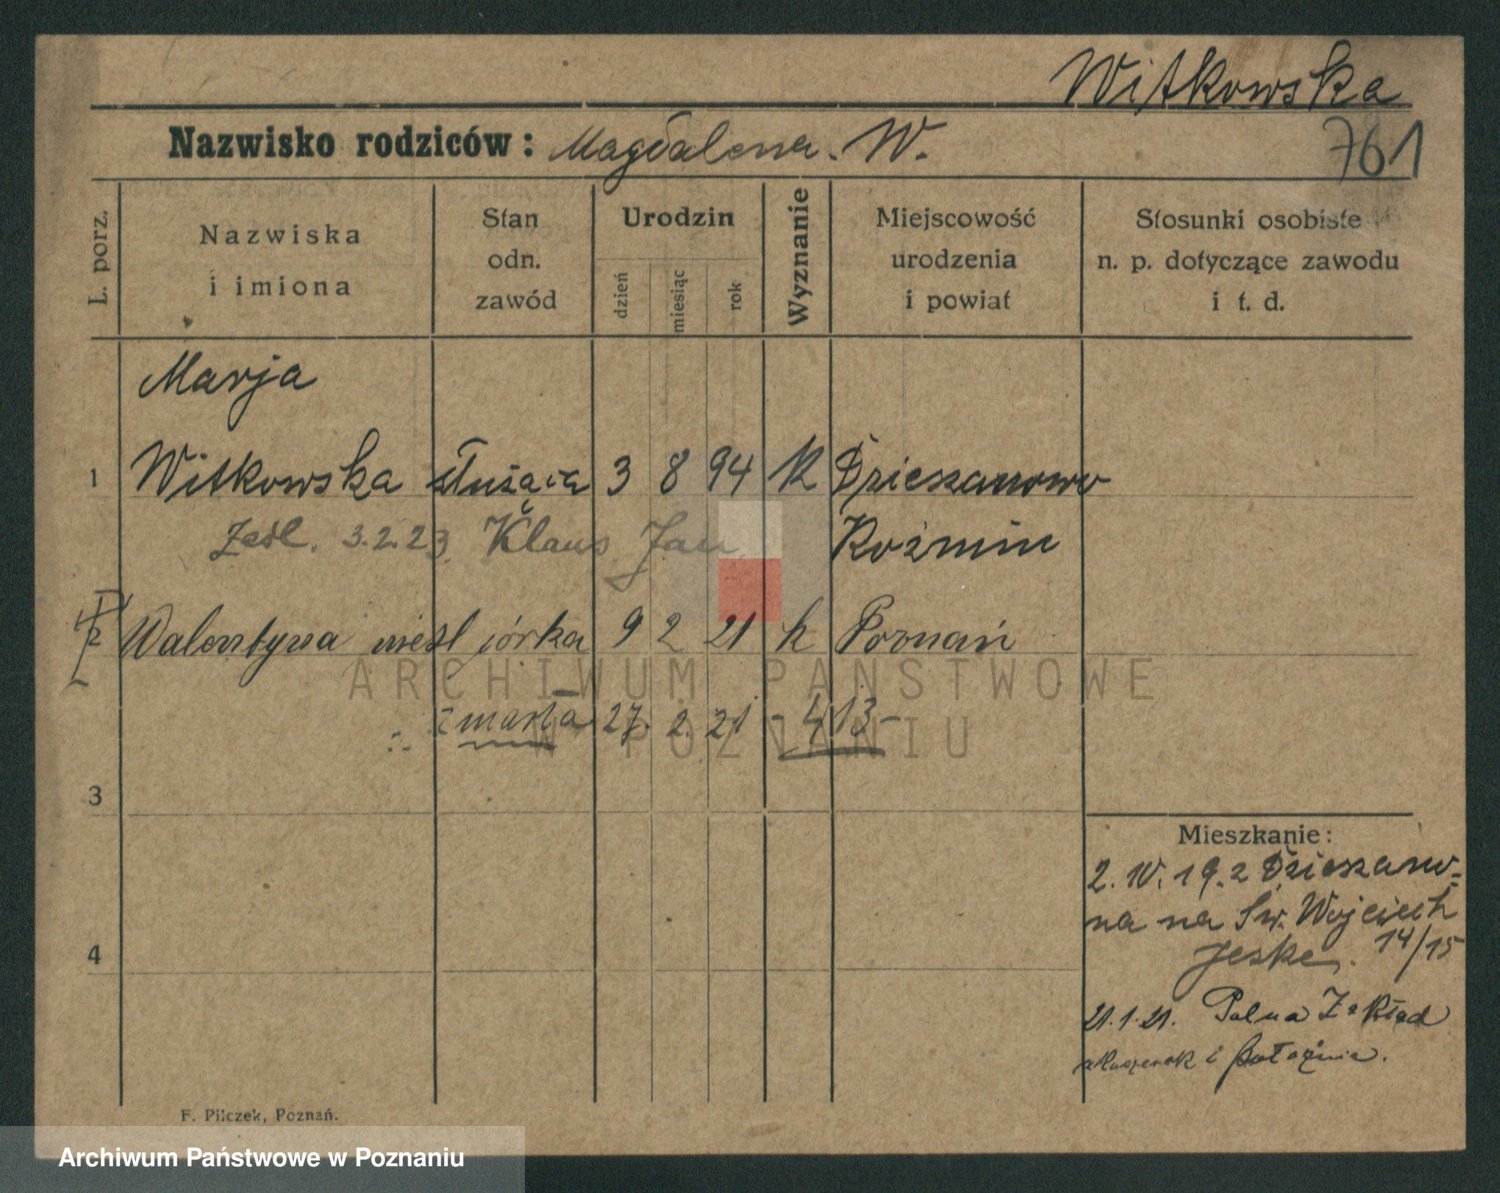 Witkowska
Nazwisko rodziców: Magdalena. W.
761
L. porz.
Nazwiska
i imiona
Stan
odn.
zawód
Urodzin
dzień
miesiąc
rok
Wyznanie
Miejscowość
urodzenia
i powiat
Stosunki osobiste
n. p. dotyczące zawodu
i t. d.
Marja
1 Witkowska służąca 3 8 94 K Dzieszanowo
3.2.23 Klaus Jan Koźmin
2 Walentyna nieśl córka 9 2 21 k Poznań
zmarła 27. 2. 21 - 413 -
3
4
Mieszkanie:
2. IV. 19. z Dzieszano=
na na Św. Wojciech
Jeske. 14/15
21.1.21. Polna Zakład
akuszerek i położnic.
F. Pilczek, Poznań.
ARCHIWUM PAŃSTWOWE
W POZNANIU
Archiwum Państwowe w Poznaniu